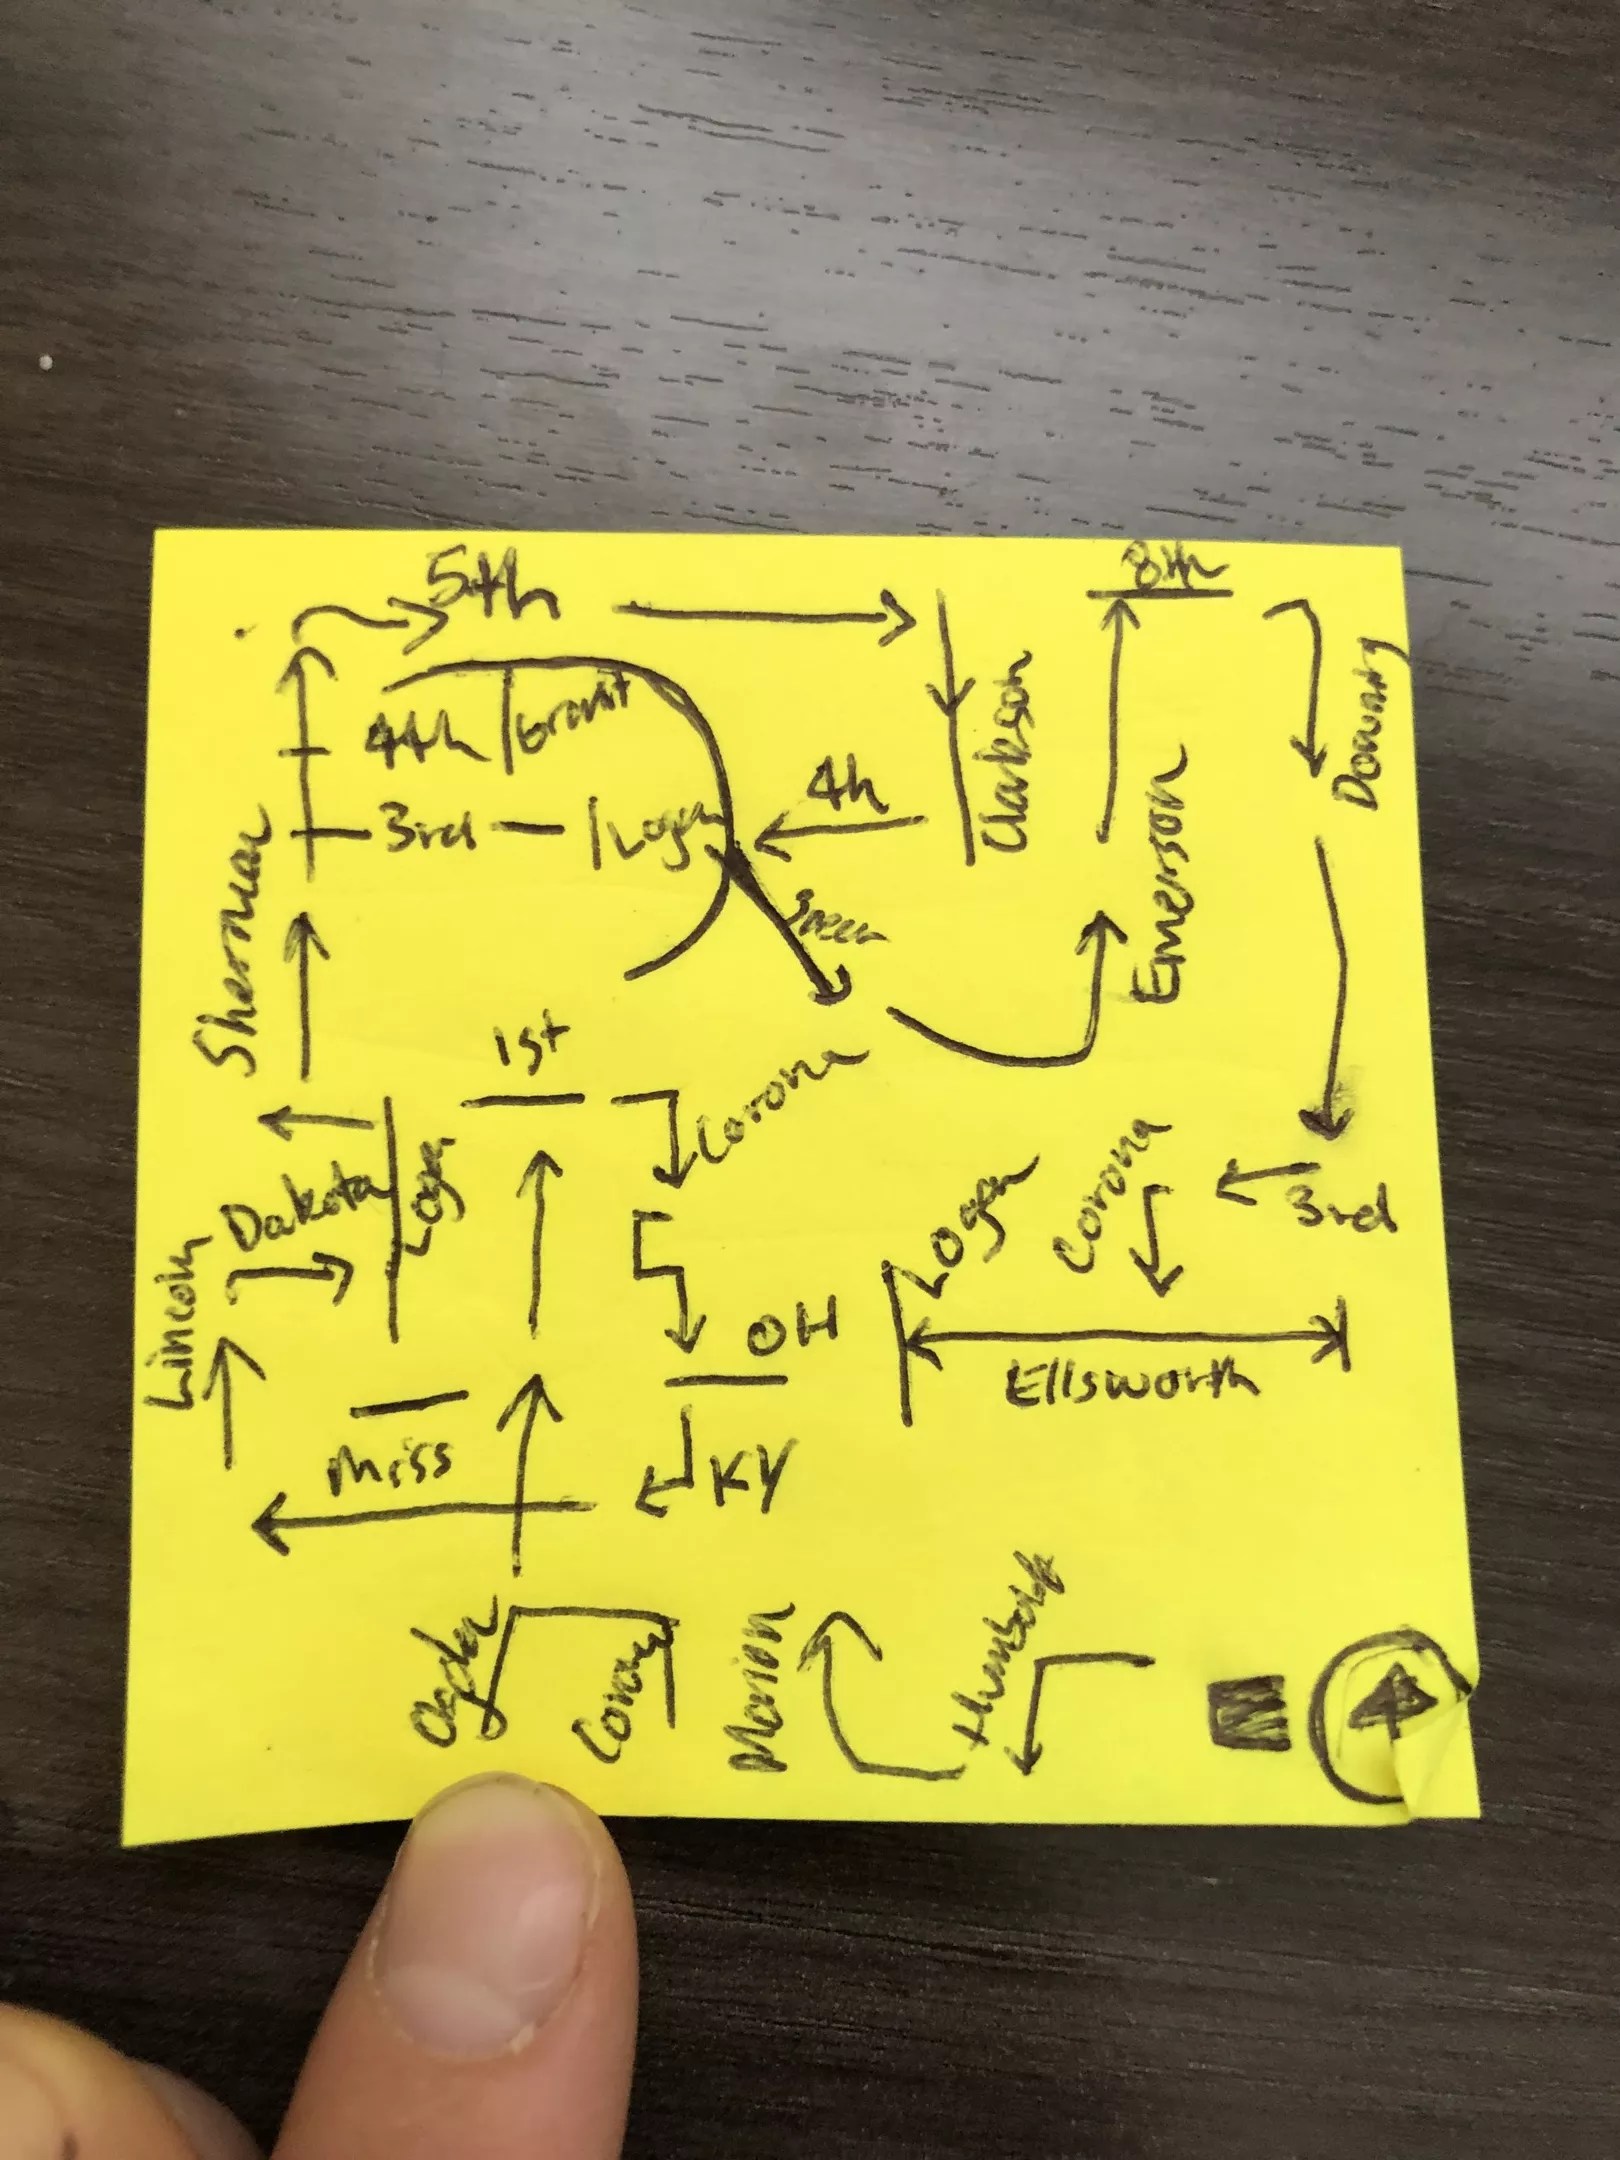 5th
8th
4th
Grant
3rd
Logan
4h
Clarkson
Downing
Sherman
Speer
Emerson
1st
Corona
Logan
Dakota
Lincoln
Logan
Corona
3rd
OH
Ellsworth
Miss
KY
Ogden
Corona
Marion
Humboldt